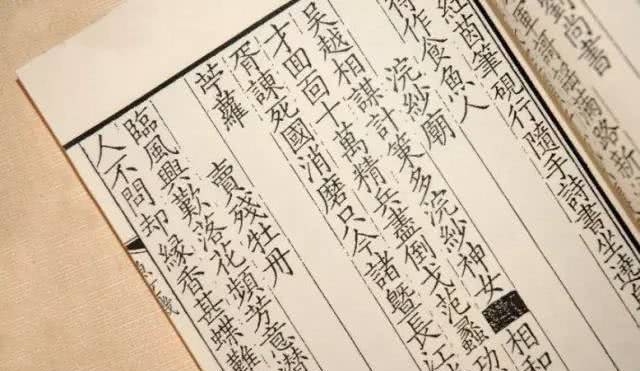 尚書
軍謌謡滿路新
紅茵筆硯行隨手詩書坐遶
得作食魚人
浣紗廟
吳越相謀計筞多浣紗神女 相和
才回面十萬精兵盡倒戈范蠡功
胥諫死國消磨只今諸暨長江
苧蘿
賣殘牡丹
臨風興歎落花頻芳意潛
人不問却緣香甚蝶難